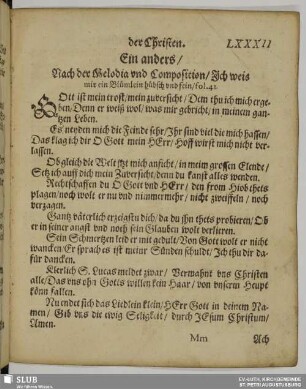 der Christen. LXXXII
Ein anders /
Nach der Melodia vnd Composition / Jch weis
mir ein Blümlein hübsch vnd fein / fol. 42
GOtt ist mein trost / mein zuversicht / Dem thu ich mich erge-
ben / Denn er weiß wol / was mir gebricht / in meinem gan-
tzen Leben.
Es neyden mich die Feinde sehr / Jhr sind viel die mich hassen /
Das klag ich dir O Gott mein HErr / Hoff wirst mich nicht ver-
lassen.
Ob gleich die Welt jtzt mich anficht / in meim grossen Elende /
Setz ich auff dich mein Zuversicht / denn du kanst alles wenden.
Rechtschaffen du O Gott vnd HErr / den from Hiob thets
plagen / noch wolt er nu vnd nimmermehr / nicht zweiffeln / noch
verzagen.
Gantz väterlich erzeigstu dich / da du jhn thets probieren / Ob
er in seiner angst vnd noth sein Glauben wolt verlieren.
Sein Schmertzen leid er mit gedult / Von Gott wolt er nicht
wancken / Er sprach es ist meiner Sünden schuld / Jch thu dir da-
für dancken.
Klerlich S. Lucas meldet zwar / Vermahnt vns Christen
alle / Das vns ohn Gotts willen kein Haar / von vnserm Heupt
könn fallen.
Nu endet sich das Liedlein klein / HErr Gott in deinem Na-
men / Gib vns die ewig Seligkeit / durch JEsum Christum /
Amen.
Mm Ach
SLUB
Wir führen Wissen.
EV.-LUTH. KIRCHGEMEINDE
ST. PETRI AUGUSTUSBURG